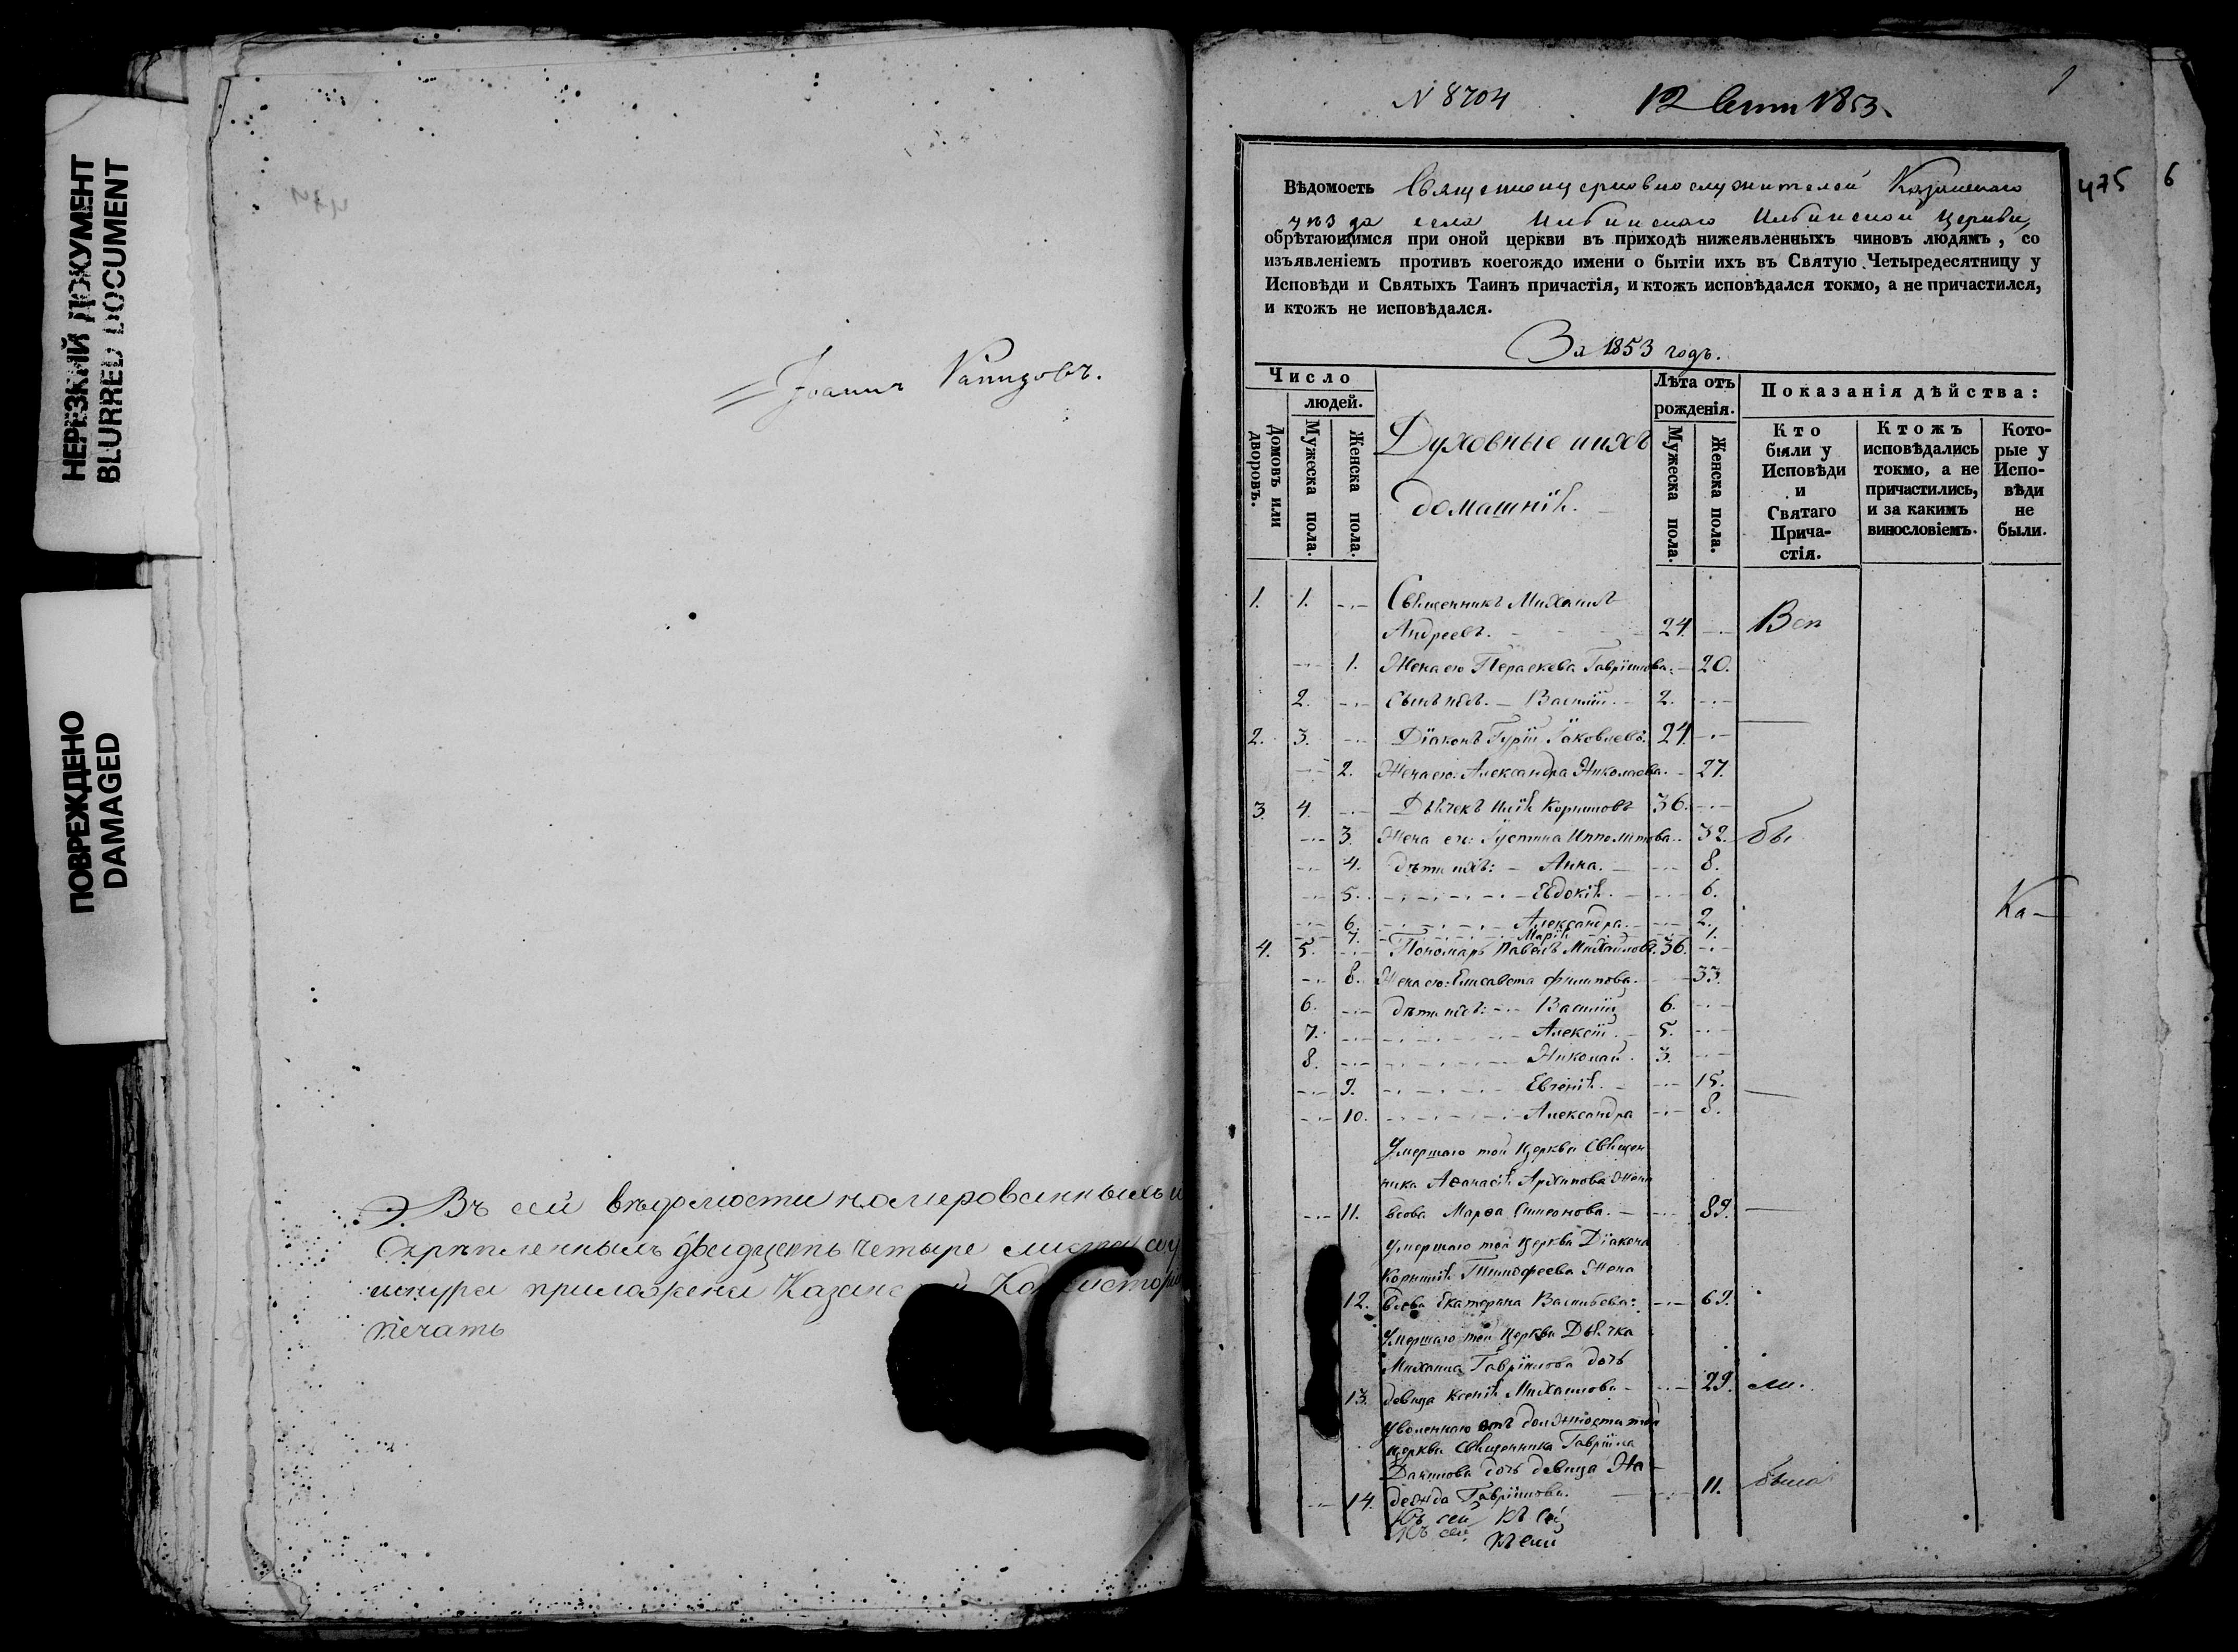 НЕРЕЗКИЙ ДОКУМЕНТ
BLURRED DOCUMENT
ПОВРЕЖДЕНО
DAMAGED
Іоаннъ
Въ сей вѣдомости номерованныхъ и
скрѣпленныхъ двадцать четыре листа
шнура приложена Казанской Консисторіи
печать
N 8704 12 Сент 1853
1
475 6
Вѣдомость Священноцерковнослужителей Казанскаго
уѣзда села Ильинскаго Ильинской церкви,
обрѣтающимся при оной церкви въ приходѣ нижеявленныхъ чиновъ людямъ, со
изъявленіемъ противъ коегождо имени о бытіи ихъ въ Святую Четыредесятницу у
Исповѣди и Святыхъ Таинъ причастія, и ктожъ исповѣдался токмо, а не причастился,
и ктожъ не исповѣдался.
За 1853 годъ.
Число
людей.
Домовъ или дворовъ.
Мужеска пола.
Женска пола.
Духовные и ихъ
домашнія.
Лѣта отъ
рожденія.
Мужеска пола.
Женска пола.
Показанія дѣйства:
Кто
были у
Исповѣди
и
Святаго
Прича-
стія.
Ктожъ
исповѣдались
токмо, а не
причастились,
и за какимъ
винословіемъ.
Кото-
рые у
Испо-
вѣди
не
были.
1. 1. Священникъ Михаилъ
Андреевъ. 24. Всѣ
1. Жена его Параскева Гавріилова. 20.
2. Сынъ ихъ. Василій. 2.
2. 3. Діаконъ Гурій Іаковлевъ. 27.
2. Жена его: Александра Николаева. 27.
3. 4. Дьячекъ Илія Корниловъ 36.
3. Жена его: Іустина Ипполитова. 32. бы
4. дѣти ихъ: Анна. 8.
5. Евдокія. 6.
6. Александра. 2.
7. Марія. 1.
Ка
4. 5. Пономарь Павелъ Михайловъ. 36.
8. Жена его: Елисавета Филипова. 33.
6. дѣти ихъ: Василій 6.
7. Алексій. 5.
8. Николай. 3.
9. Евгенія. 15.
10. Александра 8.
Умершаго той церкви Священ
ника Аѳанасія Архипова жена
11. вдова Марѳа Симеонова. 89.
Умершаго той церкви Діакона
Корнилія Тимофеева жена
12. вдова Екатерина Васильева: 69.
Умершаго той церкви Дьячка
Михаила Гавріилова дочь
13. девица Ксенія Михаилова 29. ли.
Уволеннаго отъ должности той
церкви Священника Гавріила
Данилова дочь девица На-
14. дежда Гавріилова. 11. была
Къ сей Къ сей
Къ сей Къ сей